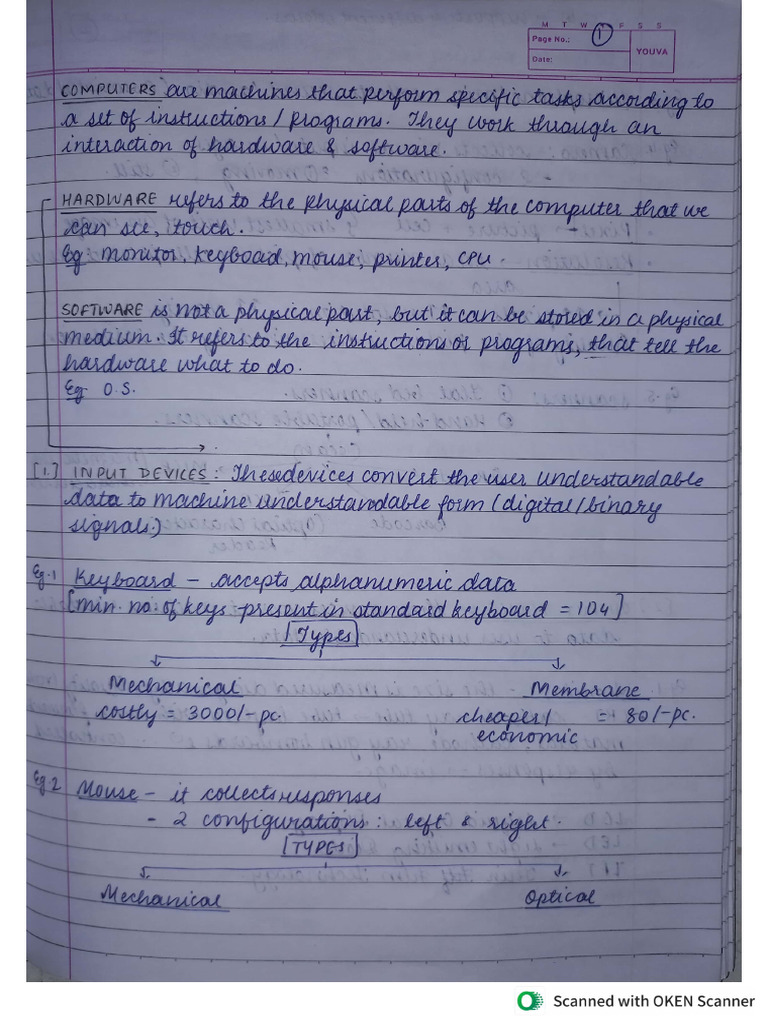 M T W T F S S
Page No.: 1
YOUVA
Date:
COMPUTERS are machines that perform specific tasks according to
a set of instructions / programs. They work through an
interaction of hardware & software.
HARDWARE refers to the physical parts of the computer that we
can see, touch.
Eg monitor, keyboad, mouse, printer, CPU.
SOFTWARE is not a physical part, but it can be stored in a physical
medium. It refers to the instructions or programs, that tell the
hardware what to do.
Eg O.S.
[1.] INPUT DEVICES: These devices convert the user understandable
data to machine understandable form (digital/binary
signals.)
Eg.1 Keyboard - accepts alphanumeric data
[min. no. of keys present in standard keyboard = 104]
Types
Mechanical Membrane
costly = 3000/-pc. cheaper/ = 80/-pc.
economic
Eg.2 Mouse - it collects responses
- 2 configurations: left & right.
TYPES
Mechanical Optical
Scanned with OKEN Scanner